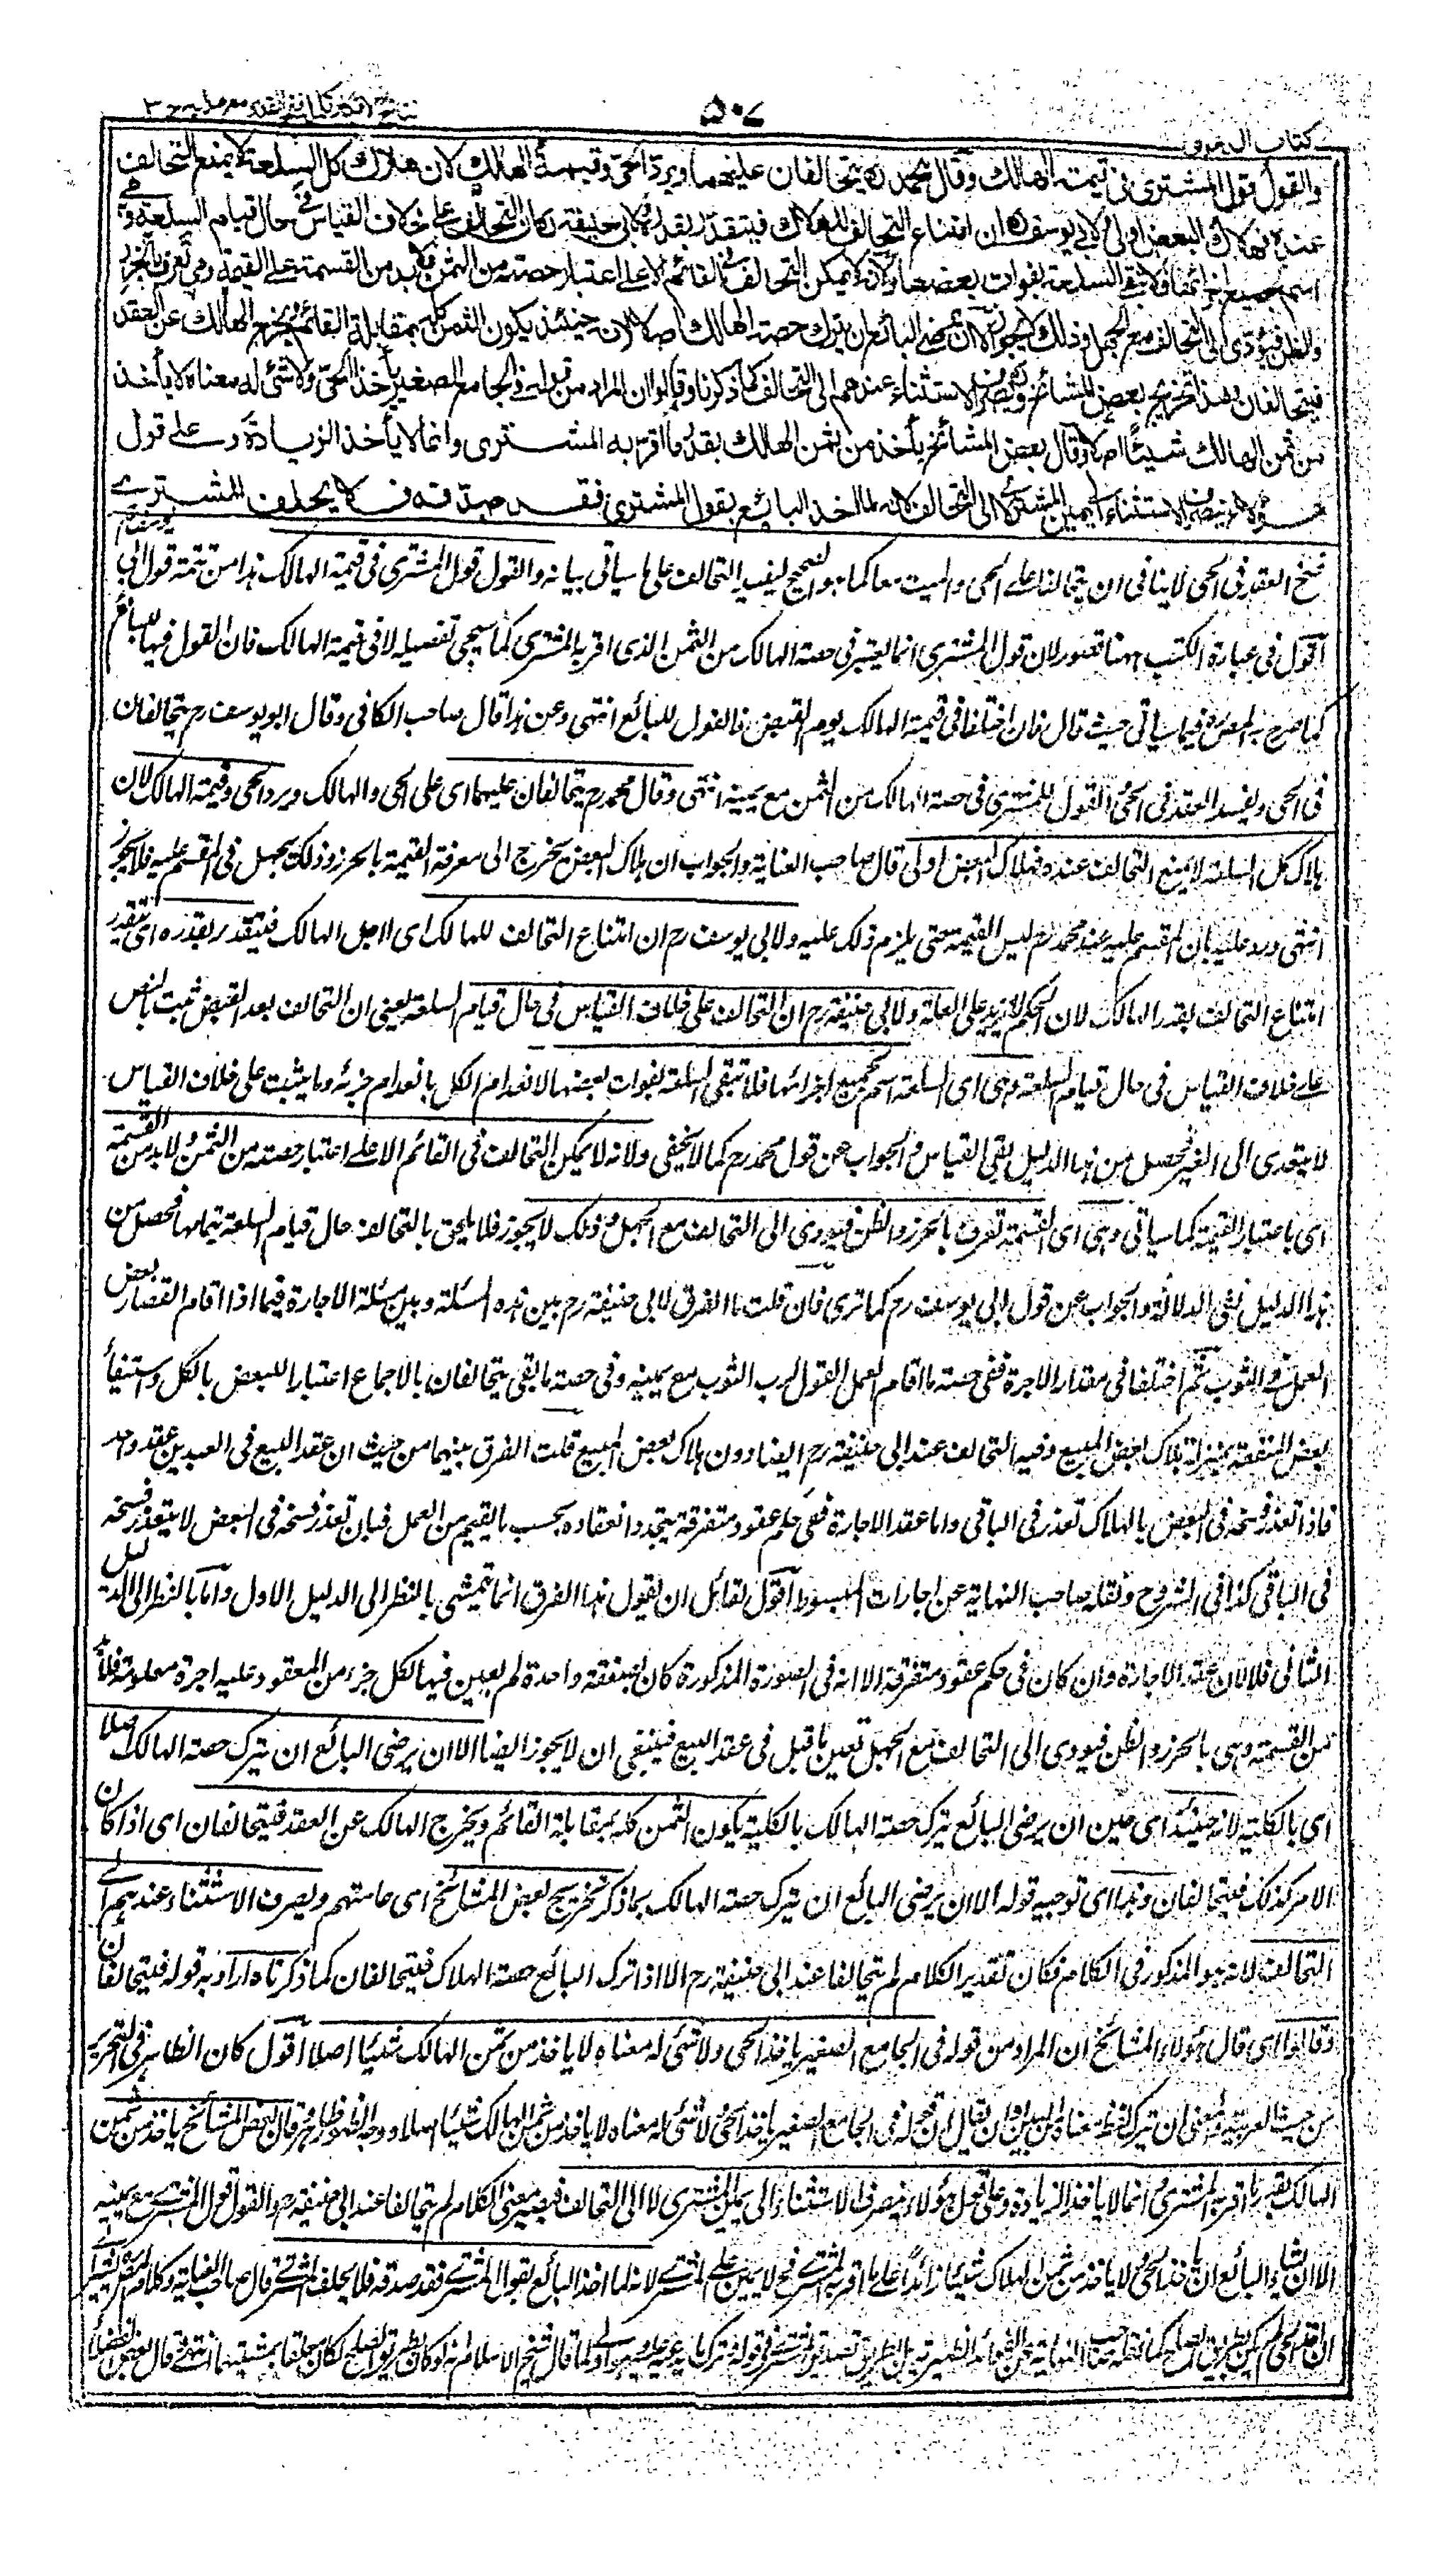 كتاب الدعوى
٥٠٧
نتائج الافكار تكملة فتح القدير مع هدايه ج ٣
والقول قول المشترى فى قيمة الهالك وقال محمد ره يتحالفان عليهما ويرد الحى وقيمة الهالك لان هلاك كل السلعة لا يمنع التحالف
عنده فهلاك البعض اولى ولابى يوسف ره ان امتناع التحالف للهلاك فيتقدر بقدره ولابى حنيفة ره ان التحالف على خلاف القياس فى حال قيام السلعة وهى
اسم لجميع اجزائها فلا تبقى السلعة بفوات بعضها ولانه لا يمكن التحالف فى القائم الا على اعتبار حصته من الثمن فلا بد من القسمة على القيمة وهى تعرف بالحزر
والظن فيؤدى الى التحالف مع الجهل وذلك لا يجوز الا ان يرضى البائع ان يترك حصة الهالك اصلا لانه حينئذ يكون الثمن كله بمقابلة القائم ويخرج الهالك عن العقد
فيتحالفان وهذا تخريج بعض المشائخ ويصرف الاستثناء عندهم الى التحالف كما ذكرنا وقالوا ان المراد من قوله فى الجامع الصغير يأخذ الحى ولا شئ له معناه لا يأخذ
من ثمن الهالك شيئا اصلا وقال بعض المشائخ يأخذ من ثمن الهالك بقدر ما اقر به المشترى وانما لا يأخذ الزيادة وعلى قول
هؤلاء ينصرف الاستثناء الى يمين المشترى لا الى التحالف لانه لما اخذ البائع بقول المشترى فقد صدقه فلا يحلف المشترى
فسخ العقد فى الحى لا ينافى ان يتحالفا على الحى والميت معا كما هو الصحيح ليفيد التحالف على ما سياتى بيانه والقول قول المشترى فى قيمة الهالك هذا من تتمة قول ابى يوسف رح
اقول فى عبارة الكتب ههنا قصور لان قول المشترى انما يعتبر فى حصة الهالك من الثمن الذى اقر به المشترى كما سيجى تفصيله لا فى قيمة الهالك فان القول فيها للبائع
كما صرح به المصنف فيما سياتى حيث قال فان اختلفا فى قيمة الهالك يوم القبض فالقول للبائع انتهى وعن هذا قال صاحب الكافى وقال ابو يوسف رح يتحالفان
فى الحى ويفسد العقد فى الحى والقول للمشترى فى حصة الهالك من الثمن مع يمينه انتهى وقال محمد رح يتحالفان عليهما اى على الحى والهالك ويرد الحى وقيمة الهالك لان
هلاك كل السلعة لا يمنع التحالف عنده فهلاك البعض اولى قال صاحب العناية والجواب ان هلاك البعض يخرج الى معرفة القيمة بالحزر وذلك يجهل فى المقسم عليه فلا يجوز
انتهى ورد عليه بان المقسم عليه عند محمد رح ليس القيمة حتى يلزم ذلك عليه ولابى يوسف رح ان امتناع التحالف للهالك اى لاجل الهالك فيتقدر بقدره اى يتقدر
امتناع التحالف بقدر الهالك لان الحكم لا يزيد على العلة ولابى حنيفة رح ان التحالف على خلاف القياس فى حال قيام السلعة يعنى ان التحالف بعد القبض ثبت بالنص
على خلاف القياس فى حال قيام السلعة وهى اى السلعة اسم لجميع اجزائها فلا تبقى السلعة بفوات بعضها لانعدام الكل بانعدام جزئه وما يثبت على خلاف القياس
لا يتعدى الى الغير فحصل من هذا الدليل نفى القياس والجواب عن قول محمد رح كما لا يخفى ولانه لا يمكن التحالف فى القائم الا على اعتبار حصته من الثمن ولا بد من القسمة
اى باعتبار القيمة كما سياتى وهى اى القسمة تعرف بالحزر والظن فيؤدى الى التحالف مع الجهل وذلك لا يجوز فلا يلحق بالتحالف حال قيام السلعة بتمامها فحصل من
هذا الدليل نفى الدلالة والجواب عن قول ابى يوسف رح كما ترى فان قلت ما الفرق لابى حنيفة رح بين هذه المسئلة وبين مسئلة الاجارة فيما اذا اقام القصار بعض
العمل فى الثوب ثم اختلفا فى مقدار الاجرة ففى حصة ما اقام العمل القول لرب الثوب مع يمينه وفى حصة ما بقى يتحالفان بالاجماع اعتبارا للبعض بالكل واستيفاء
بعض المنفعة بمنزلة هلاك بعض المبيع وفيه التحالف عند ابى حنيفة رح ايضا دون هلاك بعض المبيع قلت الفرق بينهما من حيث ان عقد البيع فى العبدين عقد واحد
فاذا تعذر فسخه فى البعض بالهلاك تعذر فى الباقى واما عقد الاجارة ففى حكم عقود متفرقة يتجدد انعقاده بحسب ما يقيم من العمل فبان تعذر فسخه فى البعض لا يتعذر فسخه
فى الباقى كذا فى الشروح ونقله صاحب النهاية عن اجارات المبسوط اقول لقائل ان يقول هذا الفرق انما يتمشى بالنظر الى الدليل الاول واما بالنظر الى الدليل
الثانى فلا لان عقد الاجارة وان كان فى حكم عقود متفرقة الا انه فى الصورة المذكورة كان بصفقة واحدة لم يعين فيها لكل جزء من المعقود عليه اجرة معلومة فلا بد
من القسمة وهى بالحزر والظن فيودى الى التحالف مع الجهل بعين ما قيل فى عقد البيع فينبغى ان لا يجوز ايضا الا ان يرضى البائع ان يترك حصة الهالك اصلا
اى بالكلية لانه حينئذ اى حين ان يرضى البائع بترك حصة الهالك بالكلية يكون الثمن كله بمقابلة القائم ويخرج الهالك عن العقد فيتحالفان اى اذا كان
الامر كذلك فيتحالفان وهذا اى توجيه قوله الا ان يرضى البائع ان يترك حصة الهالك بما ذكر تخريج بعض المشائخ اى عامتهم ويصرف الاستثناء عندهم الى
التحالف لانه هو المذكور فى الكلام فكان تقدير الكلام لم يتحالفا عند ابى حنيفة رح الا اذا ترك البائع حصة الهلاك فيتحالفان كما ذكرناه اراد به قوله فيتحالفان
وقالوا اى قال هؤلاء المشائخ ان المراد من قوله فى الجامع الصغير ياخذ الحى ولا شئ له معناه لا ياخذ من ثمن الهالك شيئا اصلا اقول كان الظاهر فى التحرير
من حيث العربية والمعنى ان يترك لفظة معناه من البين او ان يقال ان قوله فى الجامع الصغير ياخذ الحى ولا شئ له معناه لا ياخذ من ثمن الهالك شيئا اصلا ووجه الظهور ظاهر وقال بعض المشائخ ياخذ من ثمن
الهالك بقدر ما اقر به المشترى وانما لا ياخذ الزيادة وعلى قول هؤلاء ينصرف الاستثناء الى يمين المشترى لا الى التحالف فيصير معنى الكلام لم يتحالفا عند ابى حنيفة رح والقول قول المشترى مع يمينه
الا ان يشاء البائع ان ياخذ الحى ولا ياخذ من ثمن الهلاك شيئا زائدا على ما اقر به المشترى فح لا يمين على المشترى لانه لما اخذ البائع بقول المشترى فقد صدقه فلا يحلف المشترى قال صاحب العناية وكلام المصنف يشير
الى ان اخذ الحى لم يكن بطريق الصلح كما نقله صاحب النهاية عن الفوائد الظهيرية بل بطريق تصديق المشترى فى قوله وترك ما يدعيه عليه وهو اولى لما قال شيخ الاسلام انه لو كان بطريق الصلح لكان معلقا بمشيتهما انتهى وقال بعض الفضلاء